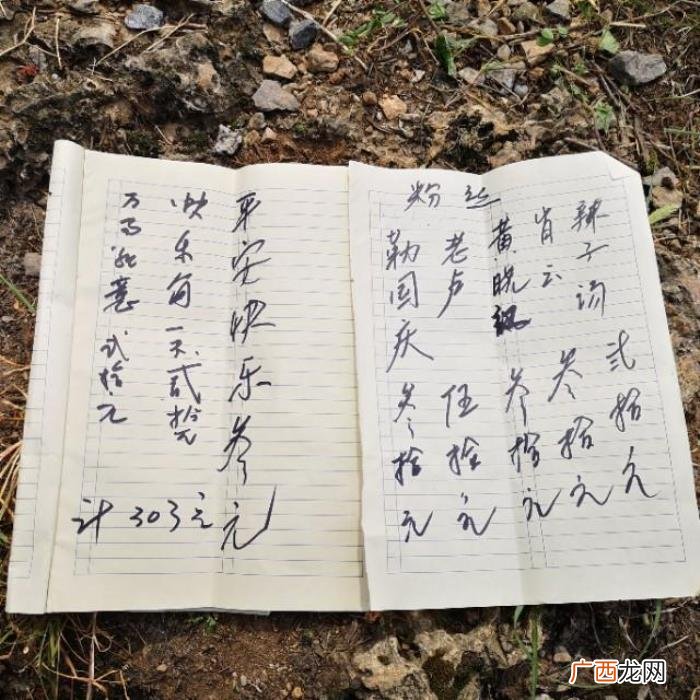 粉丝
辣子汤 弍拾元
肖云 叁拾元
黄晓 叁拾元
老卢 伍拾元
勒国庆 叁拾元
平安快乐叁元
快乐每一天 贰拾元
万事如意 弍拾元
计 303元
广西龙网